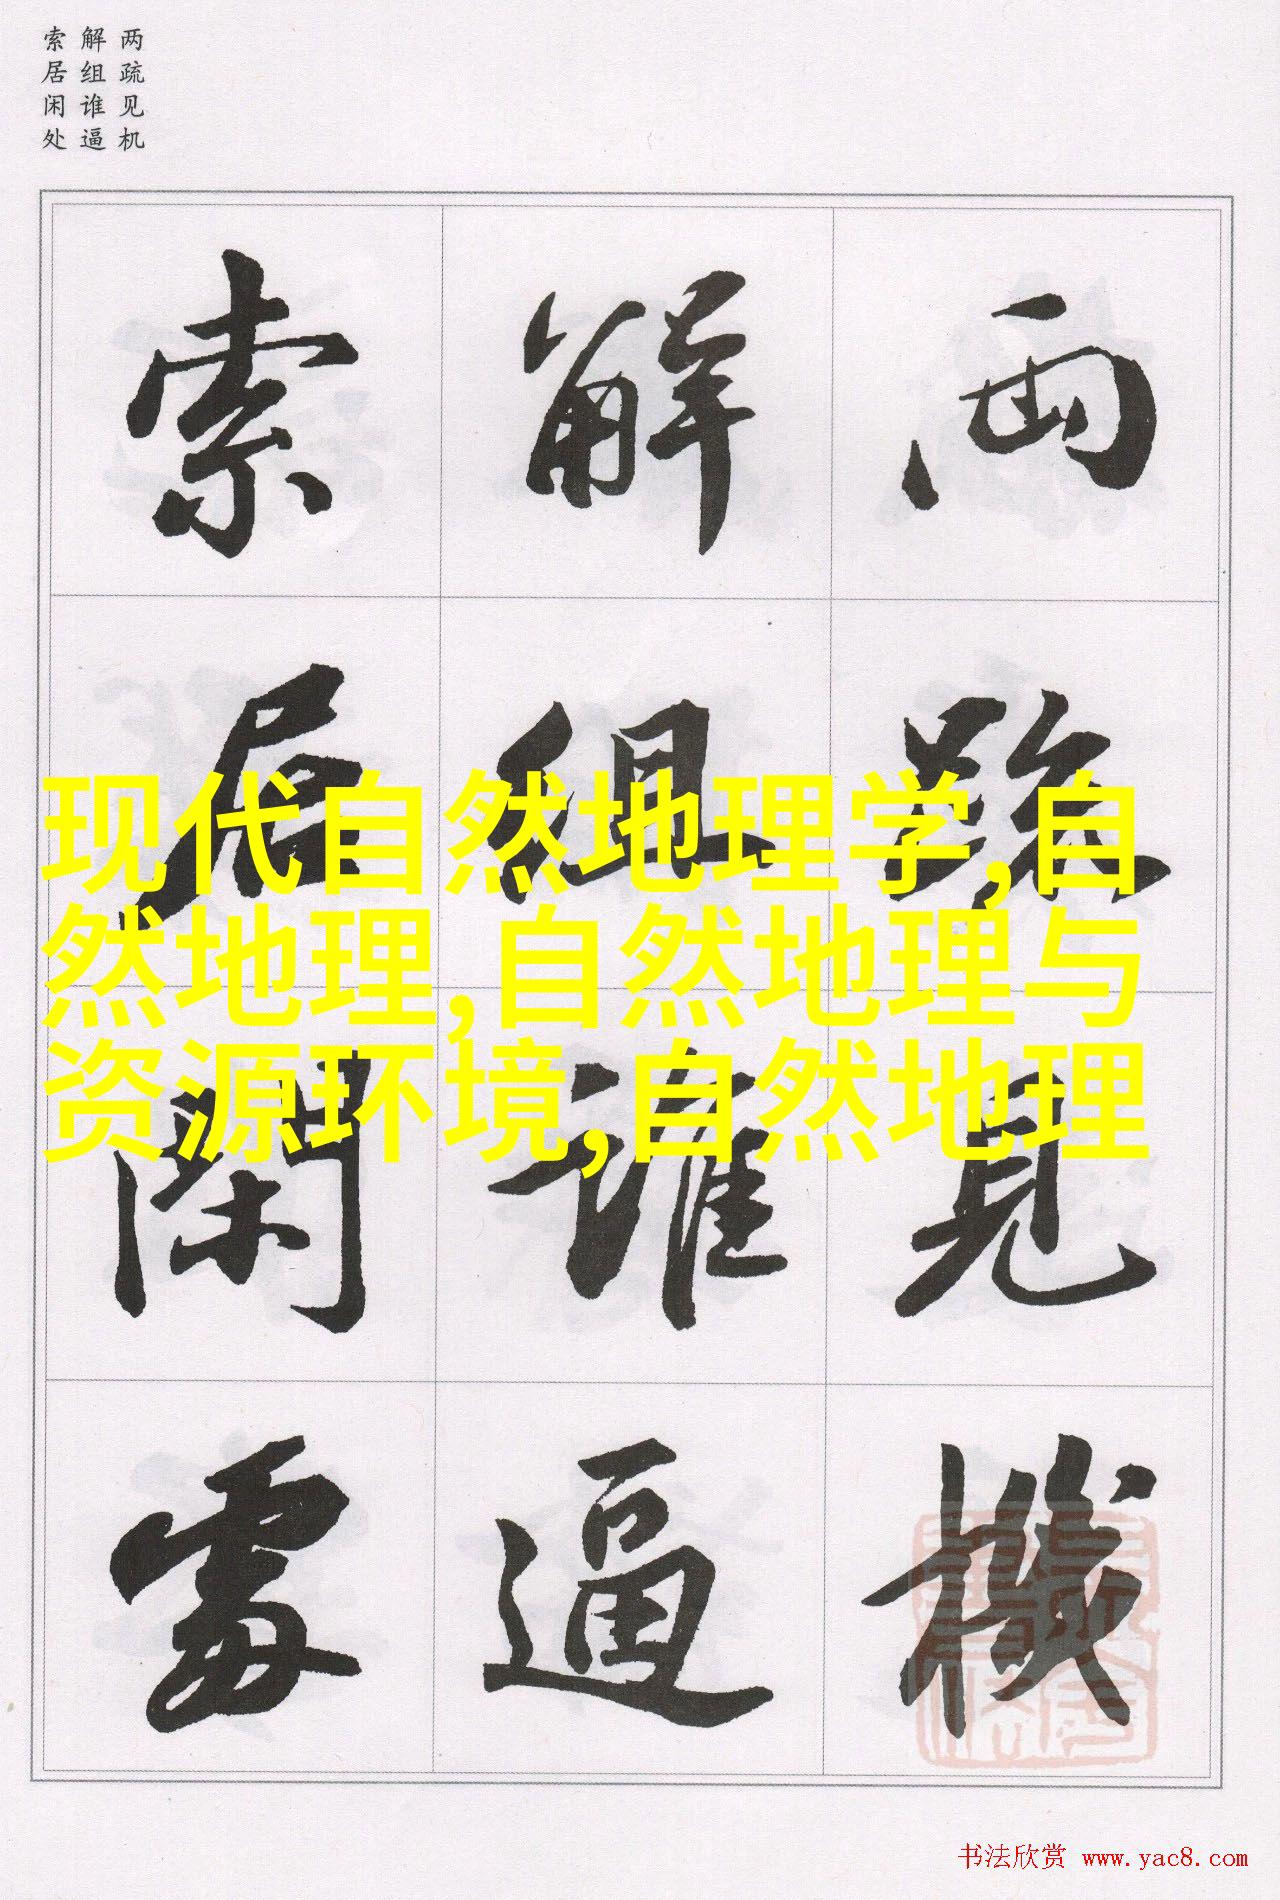 两疏见机
解组谁逼
索居闲处
两疏見機
解組誰逼
索居閑處
现代自然地理学,自
然地理,自然地理与
资源环境,自然地理
书法欣赏 www.yac8.com